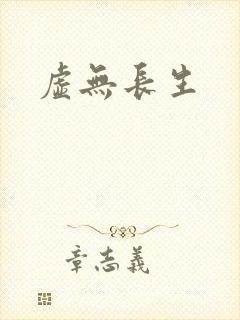 虛無長生
章志義